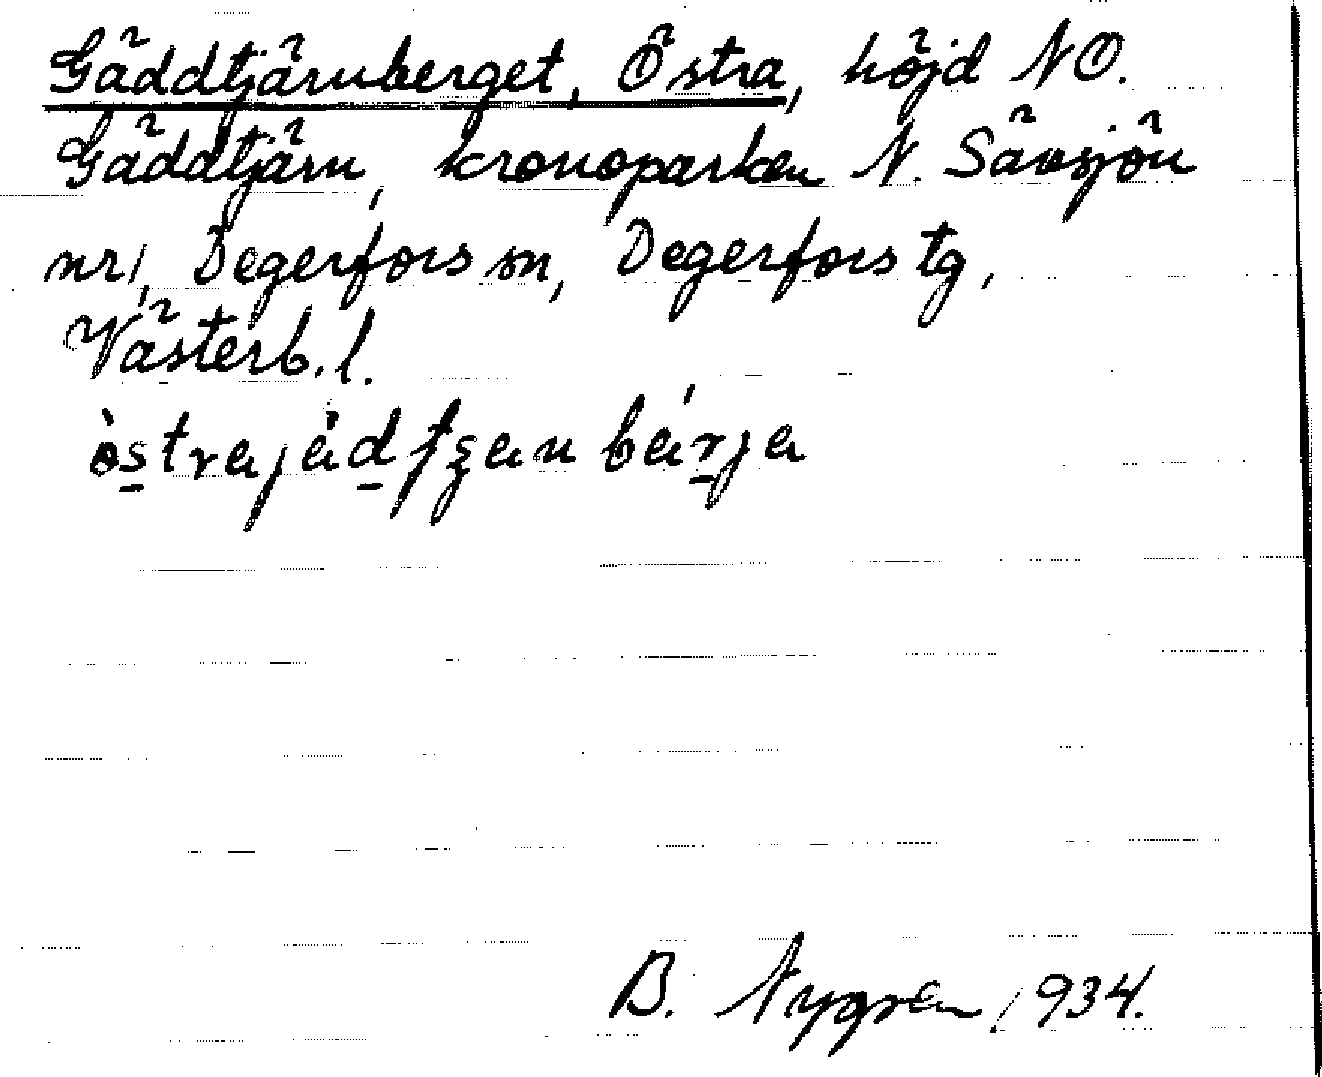 Gäddtjärnberget, Östra, höjd NO.
Gäddtjärn, kronoparken N. Sävsjön
nr 1, Degerfors sn, Degerfors tg,
Västerb. l.
B. Nygren 1934.